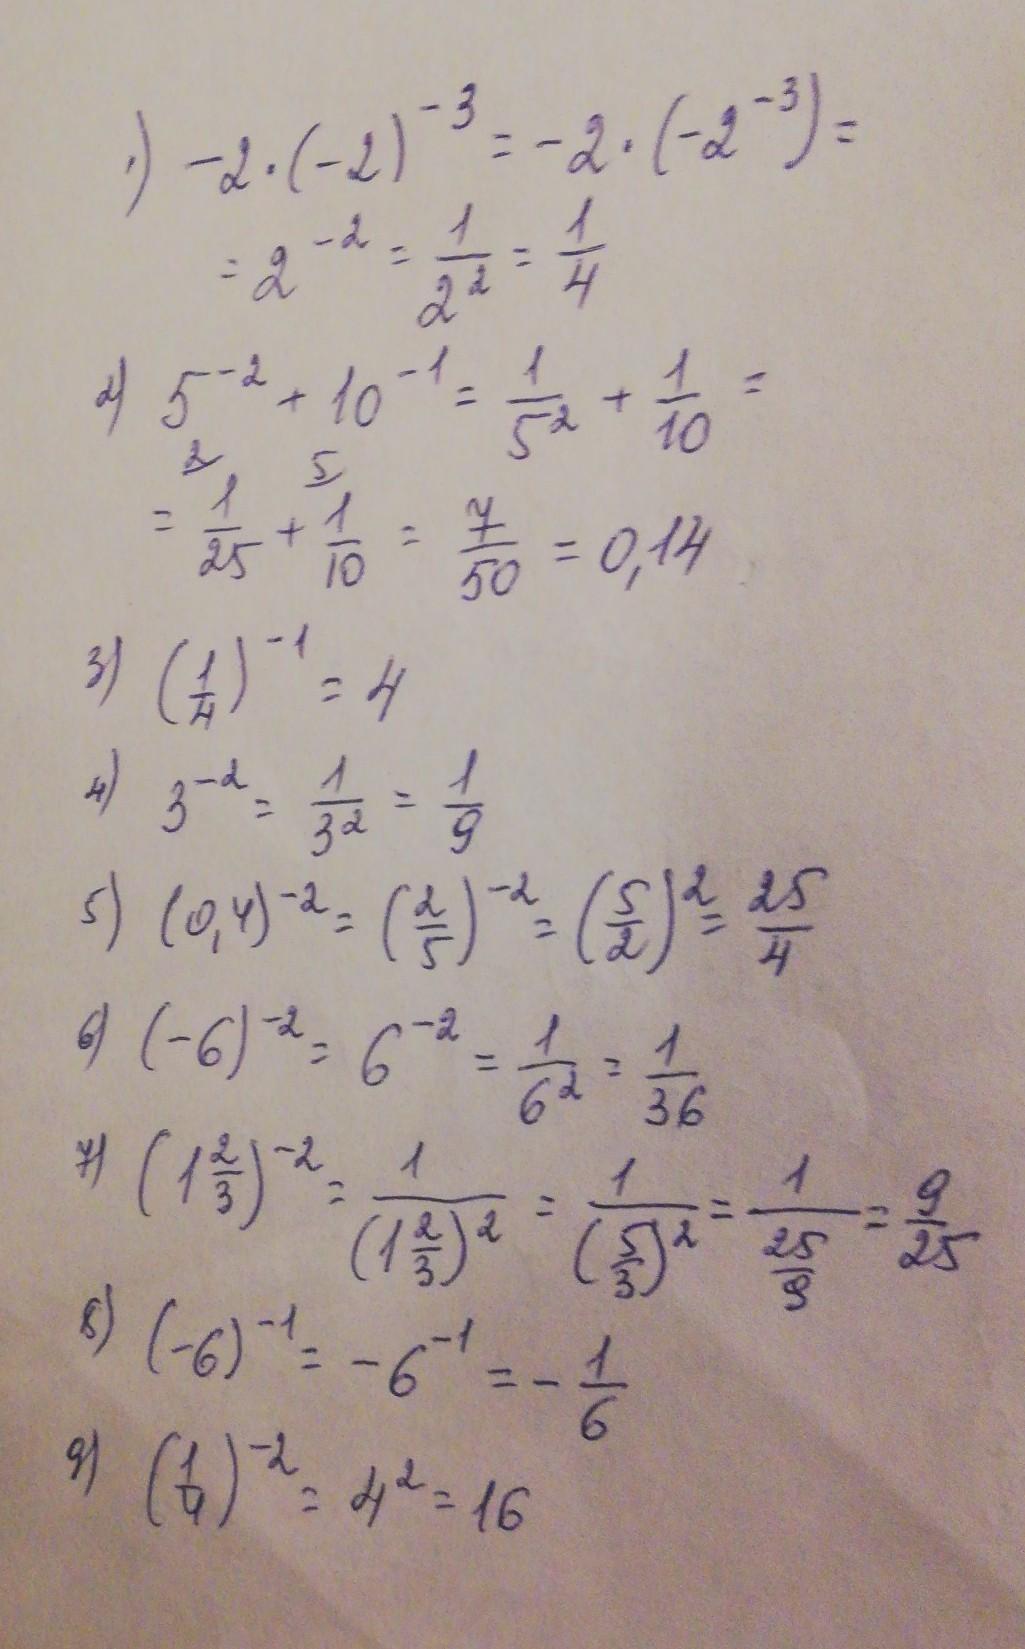 1) -2·(-2)^{-3} = -2·(-2^{-3}) =
= 2^{-2} = \frac{1}{2^2} = \frac{1}{4}
2) 5^{-2} + 10^{-1} = \frac{1}{5^2} + \frac{1}{10} =
= \frac{1}{25}^{2} + \frac{1}{10}^{5} = \frac{7}{50} = 0,14
3) (\frac{1}{4})^{-1} = 4
4) 3^{-2} = \frac{1}{3^2} = \frac{1}{9}
5) (0,4)^{-2} = (\frac{2}{5})^{-2} = (\frac{5}{2})^2 = \frac{25}{4}
6) (-6)^{-2} = 6^{-2} = \frac{1}{6^2} = \frac{1}{36}
7) (1\frac{2}{3})^{-2} = \frac{1}{(1\frac{2}{3})^2} = \frac{1}{(\frac{5}{3})^2} = \frac{1}{\frac{25}{9}} = \frac{9}{25}
8) (-6)^{-1} = -6^{-1} = -\frac{1}{6}
9) (\frac{1}{4})^{-2} = 4^2 = 16